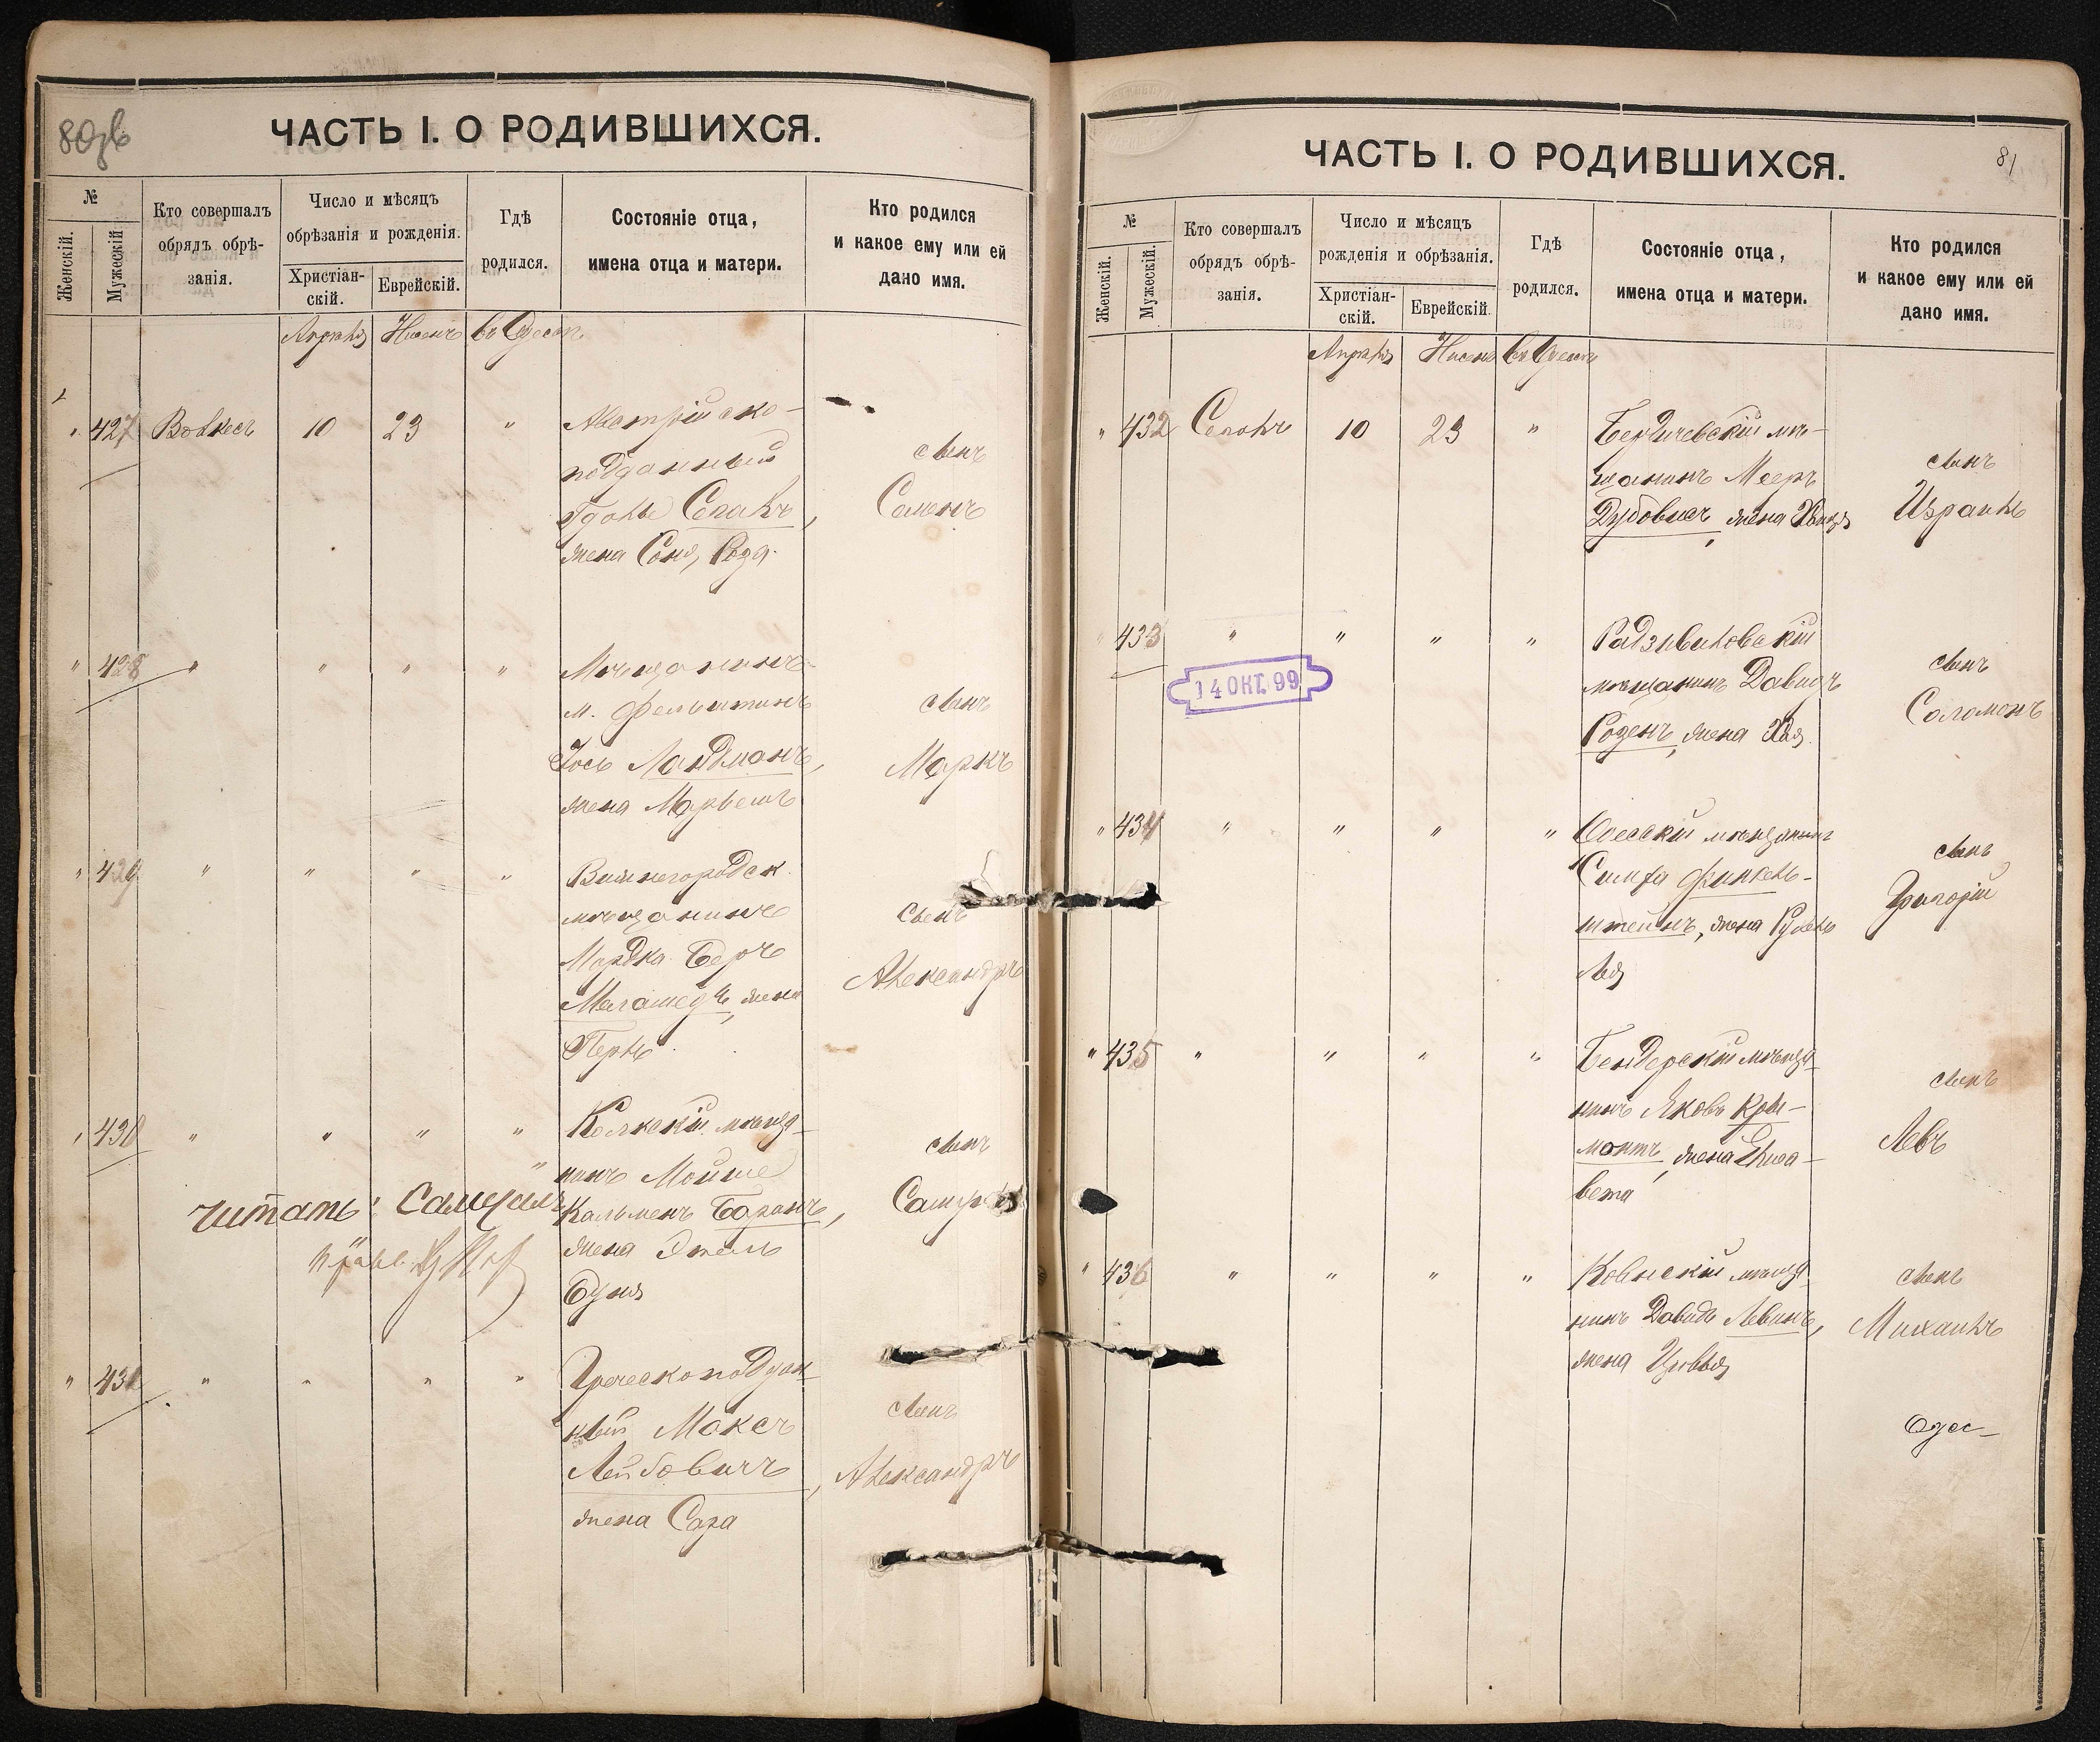 80об
ЧАСТЬ I. О РОДИВШИХСЯ.
№
Женскій.
Мужескій.
Кто совершалъ
обрядъ обрѣ-
занія.
Число и мѣсяцъ
обрѣзанія и рожденія.
Христіан-
скій.
Еврейскій.
Гдѣ
родился.
Состояніе отца,
имена отца и матери.
Кто родился
и какое ему или ей
дано имя.
Апрѣль Нисенъ въ Одессѣ
" 427 10 23 " Австрійско-
подданный
жена Соня, Роза
сынъ
Семенъ
" 428 " " " " Мѣщанинъ
м. Фельштинъ
Іось Ландманъ,
жена
сынъ
Маркъ
" 429 " " " " Вышегородск.
мѣщанинъ
Мордка Беръ
жена
Перль
сынъ
Александръ
" 430 " " " " Колкскій мѣща-
нинъ Мойше
Кальменъ Баранъ,
жена Этель
Буня
сынъ
читать: Самуилъ
" 431 " " " " Греческоподдан-
ный Максъ
Лейбовичъ,
жена Сара
сынъ
Александръ
81
ЧАСТЬ I. О РОДИВШИХСЯ.
№
Женскій.
Мужескій.
Кто совершалъ
обрядъ обрѣ-
занія.
Число и мѣсяцъ
рожденія и обрѣзанія.
Христіан-
скій.
Еврейскій.
Гдѣ
родился.
Состояніе отца,
имена отца и матери.
Кто родился
и какое ему или ей
дано имя.
Апрѣль Нисенъ въ Одессѣ
" 432 10 23 " Бердичевскій мѣ-
щанинъ Мееръ
жена
сынъ
Израиль
" 433 " " " " Радзивиловскій
мѣщанинъ Давидъ
Розенъ, жена Хая
сынъ
Соломонъ
14 ОКТ. 99
" 434 " " " " Одесскій мѣщанинъ
Симха Финкель-
штейнъ, жена Рухль
Лея
сынъ
Григорій
" 435 " " " " Бендерскій мѣща-
нинъ Яковъ Кри-
монтъ, жена Елиза-
вета
сынъ
Левъ
" 436 " " " " Ковенскій мѣща-
нинъ Давидъ Левинъ,
жена Цивья
сынъ
Михаилъ
Одес-